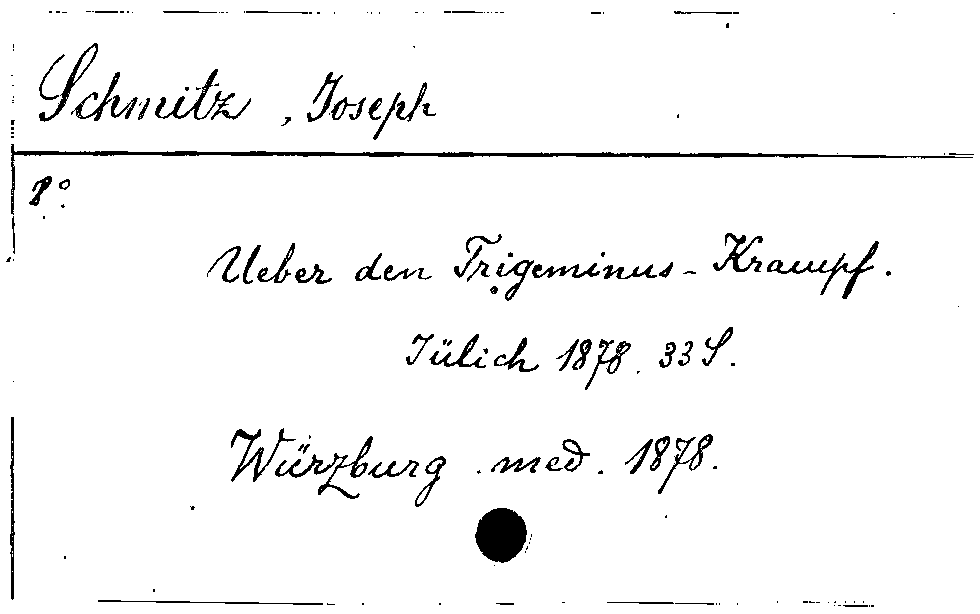 Schmitz, Joseph
8°.
Ueber den Trigeminus-Krampf.
Jülich 1878. 33 S.
Würzburg. med. 1878.